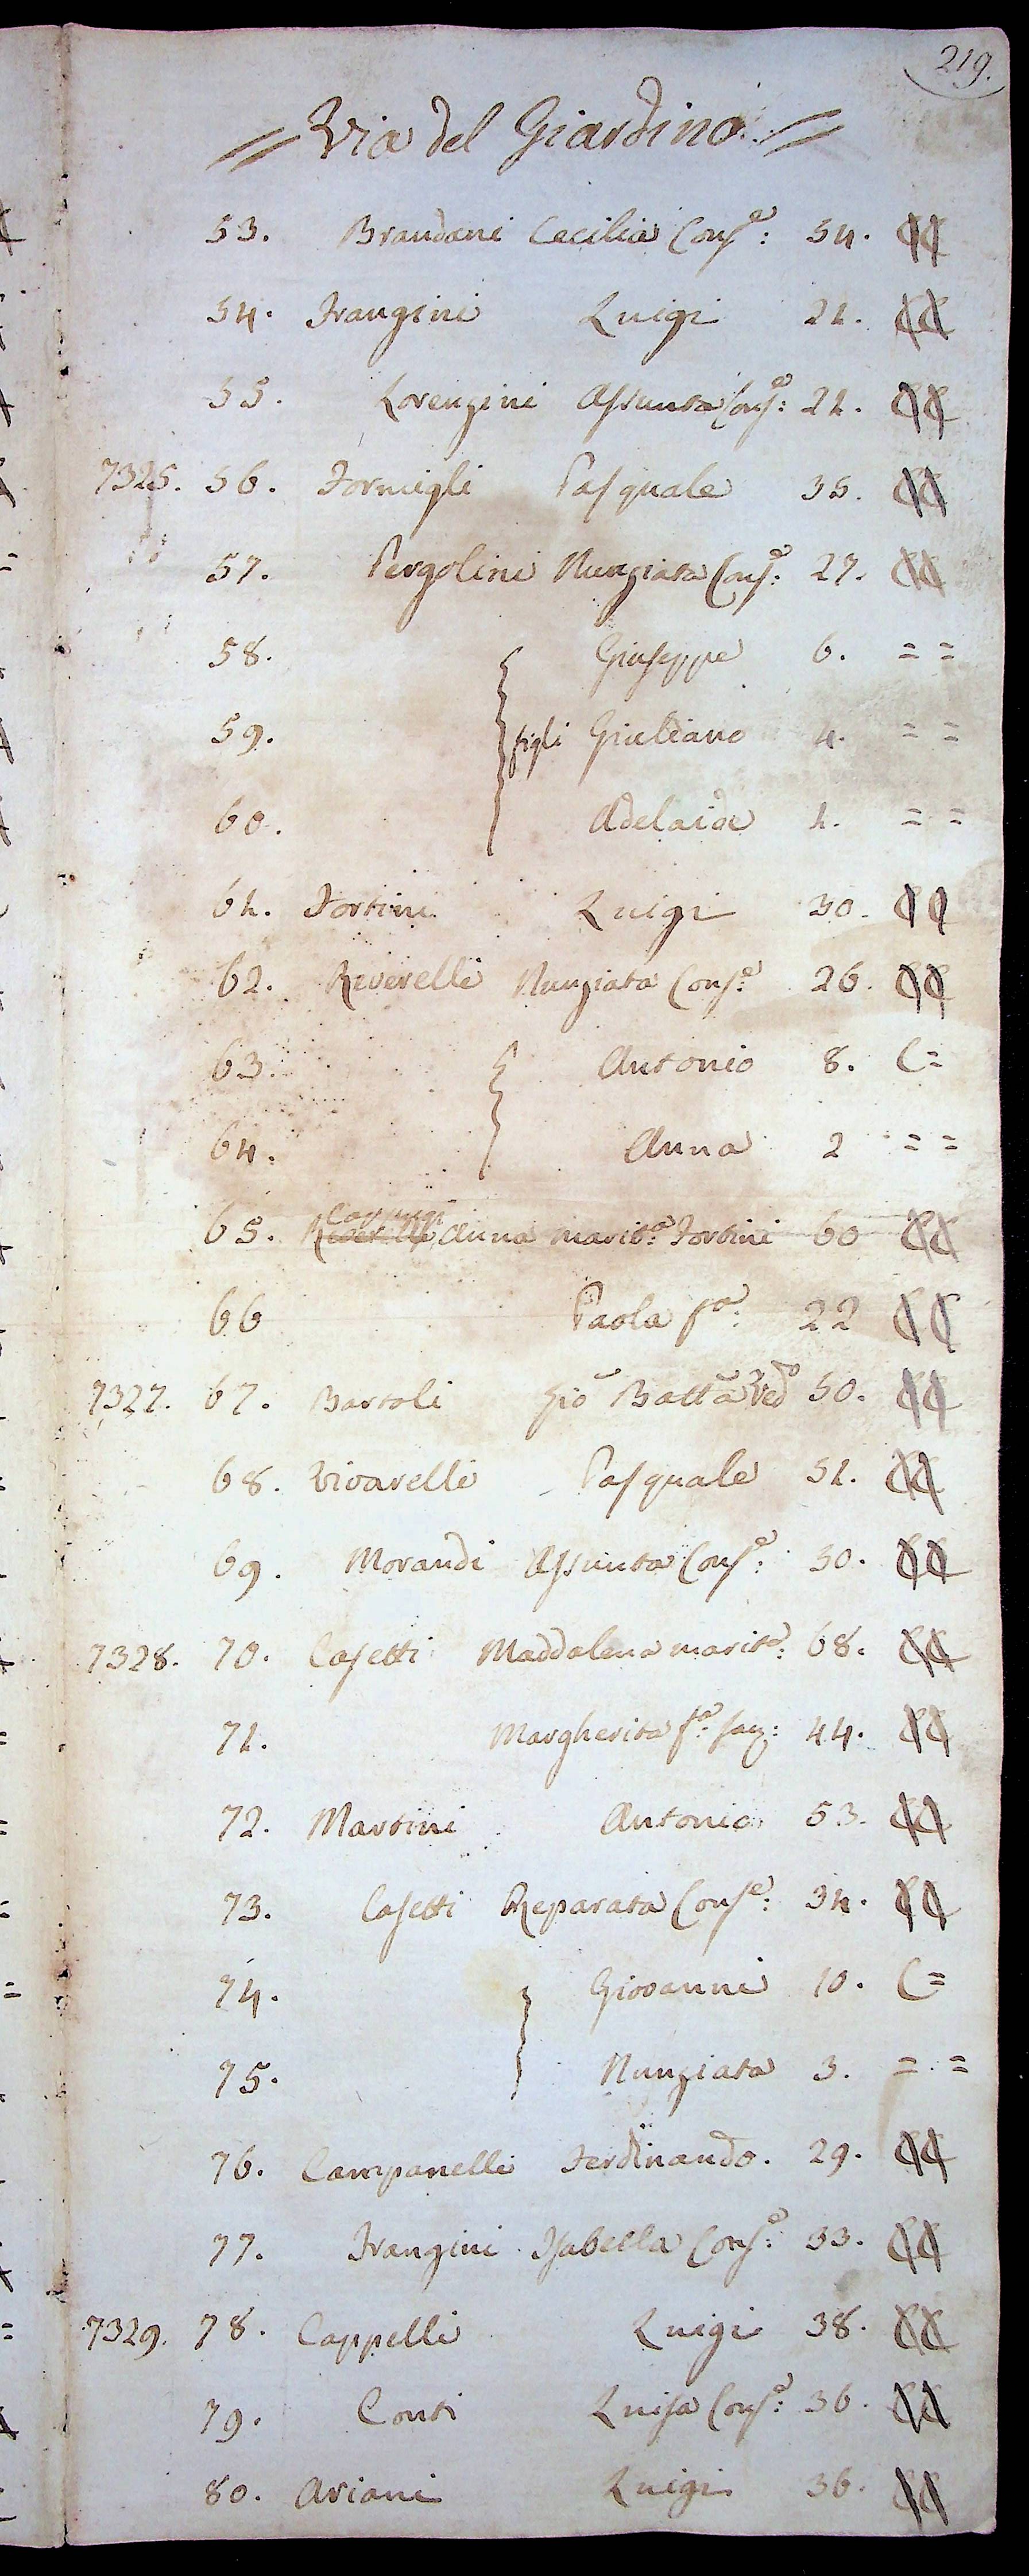 219.
= Via del Giardino =
53. Brandani Cecilia Cons.e: 54. ₡₡
54. Frangini Luigi 21. ₡₡
55. Lorenzini Assunta Cons.e: 21. ₡₡
7325. 56. Formigli Pasquale 35. ₡₡
57. Pergolini Nunziata Cons.e: 27. ₡₡
58. Giuseppe 6. = =
59. figli Giuliano 4. = =
60. Adelaide 1. = =
61. Fortini Luigi 30. ₡₡
62. Reverelli Nunziata Cons.e 26. ₡₡
63. Antonio 8. C=
64. Anna 2 = =
65. Anna marit.a Fortini 60 ₡₡
66 Paola f.a: 22 ₡₡
7327. 67. Bartoli Gio Batta Ved.o 50. ₡₡
68. Vivarelli Pasquale 51. ₡₡
69. Morandi Assunta Cons.e: 30. ₡₡
7328. 70. Casetti Maddalena marit.a: 68. ₡₡
71. Margherita f.a: 44. ₡₡
72. Martini Antonio 53. ₡₡
73. Casetti Reparata Cons.e: 34. ₡₡
74. Giovanni 10. C=
75. Nunziata 3. = =
76. Campanelli Ferdinando. 29. ₡₡
77. Frangini Isabella Cons.e: 33. ₡₡
7329. 78. Cappelli Luigi 38. ₡₡
79. Conti Luisa Cons.e: 36. ₡₡
80. Ariani Luigi 36. ₡₡